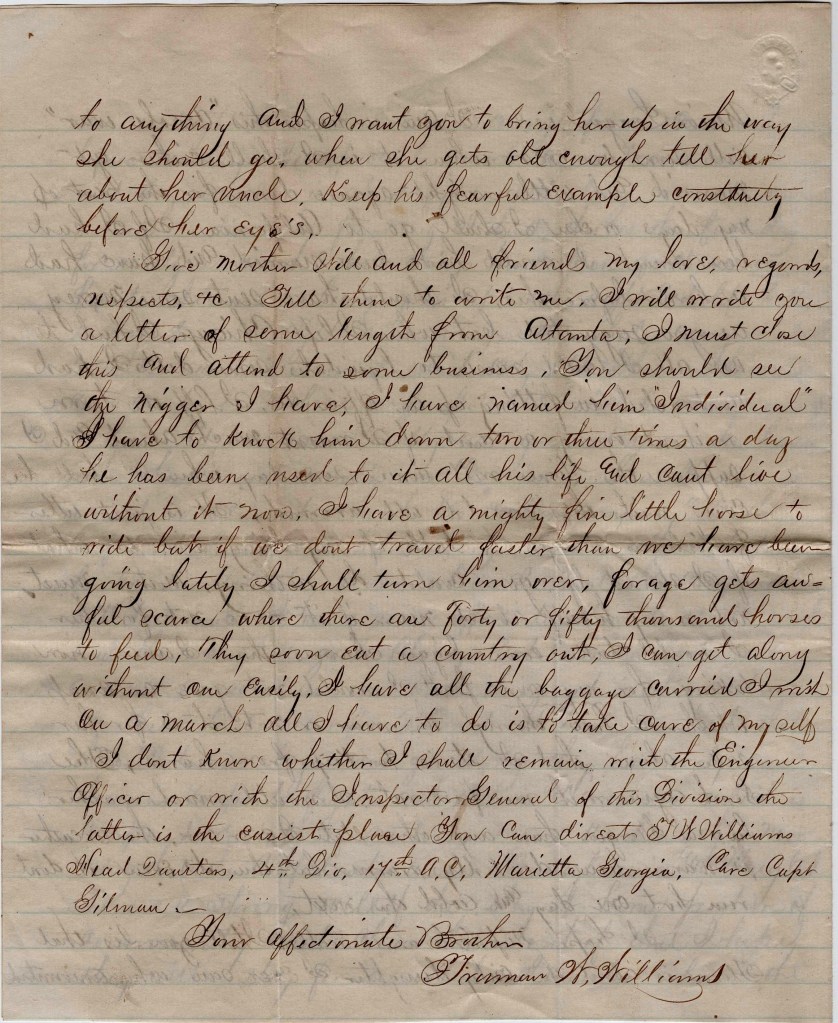 to anything And I want you to bring her up in the way
she should go. when she gets old enough tell her
about her uncle. Keep his fearful example constantly
before her eye's.
Give mother Will and all friends my love, regards,
respects, &c Tell them to write me. I will write you
a letter of some length from Atlanta. I must close
this and attend to some business. You should see
the nigger I have, I have named him "Individual"
I have to knock him down two or three times a day
he has been used to it all his life and cant live
without it now. I have a mighty fine little horse to
ride but if we dont travel faster than we have been
going lately I shall turn him over, forage gets aw=
ful scarce where there are Forty or fifty thousand horses
to feed, They soon eat a country out, I can get along
without one easily. I have all the baggage carried I wish
On a march all I have to do is to take care of my self
I dont know whether I shall remain with the Engineer
Officer or with the Inspector General of this Division the
latter is the easiest place You can direct T W Williams
Head Quarters, 4th Div, 17th A.C, Marietta Georgia, Care Capt
Gilman
Your Affectionate Brother
Truman W, Williams